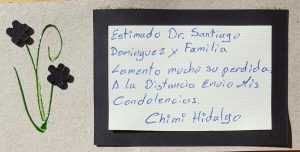 Estimado Dr. Santiago
Dominguez y Familia
Lamento mucho su perdida.
A la Distancia Envio Mis
Condolencias.
Chimi Hidalgo